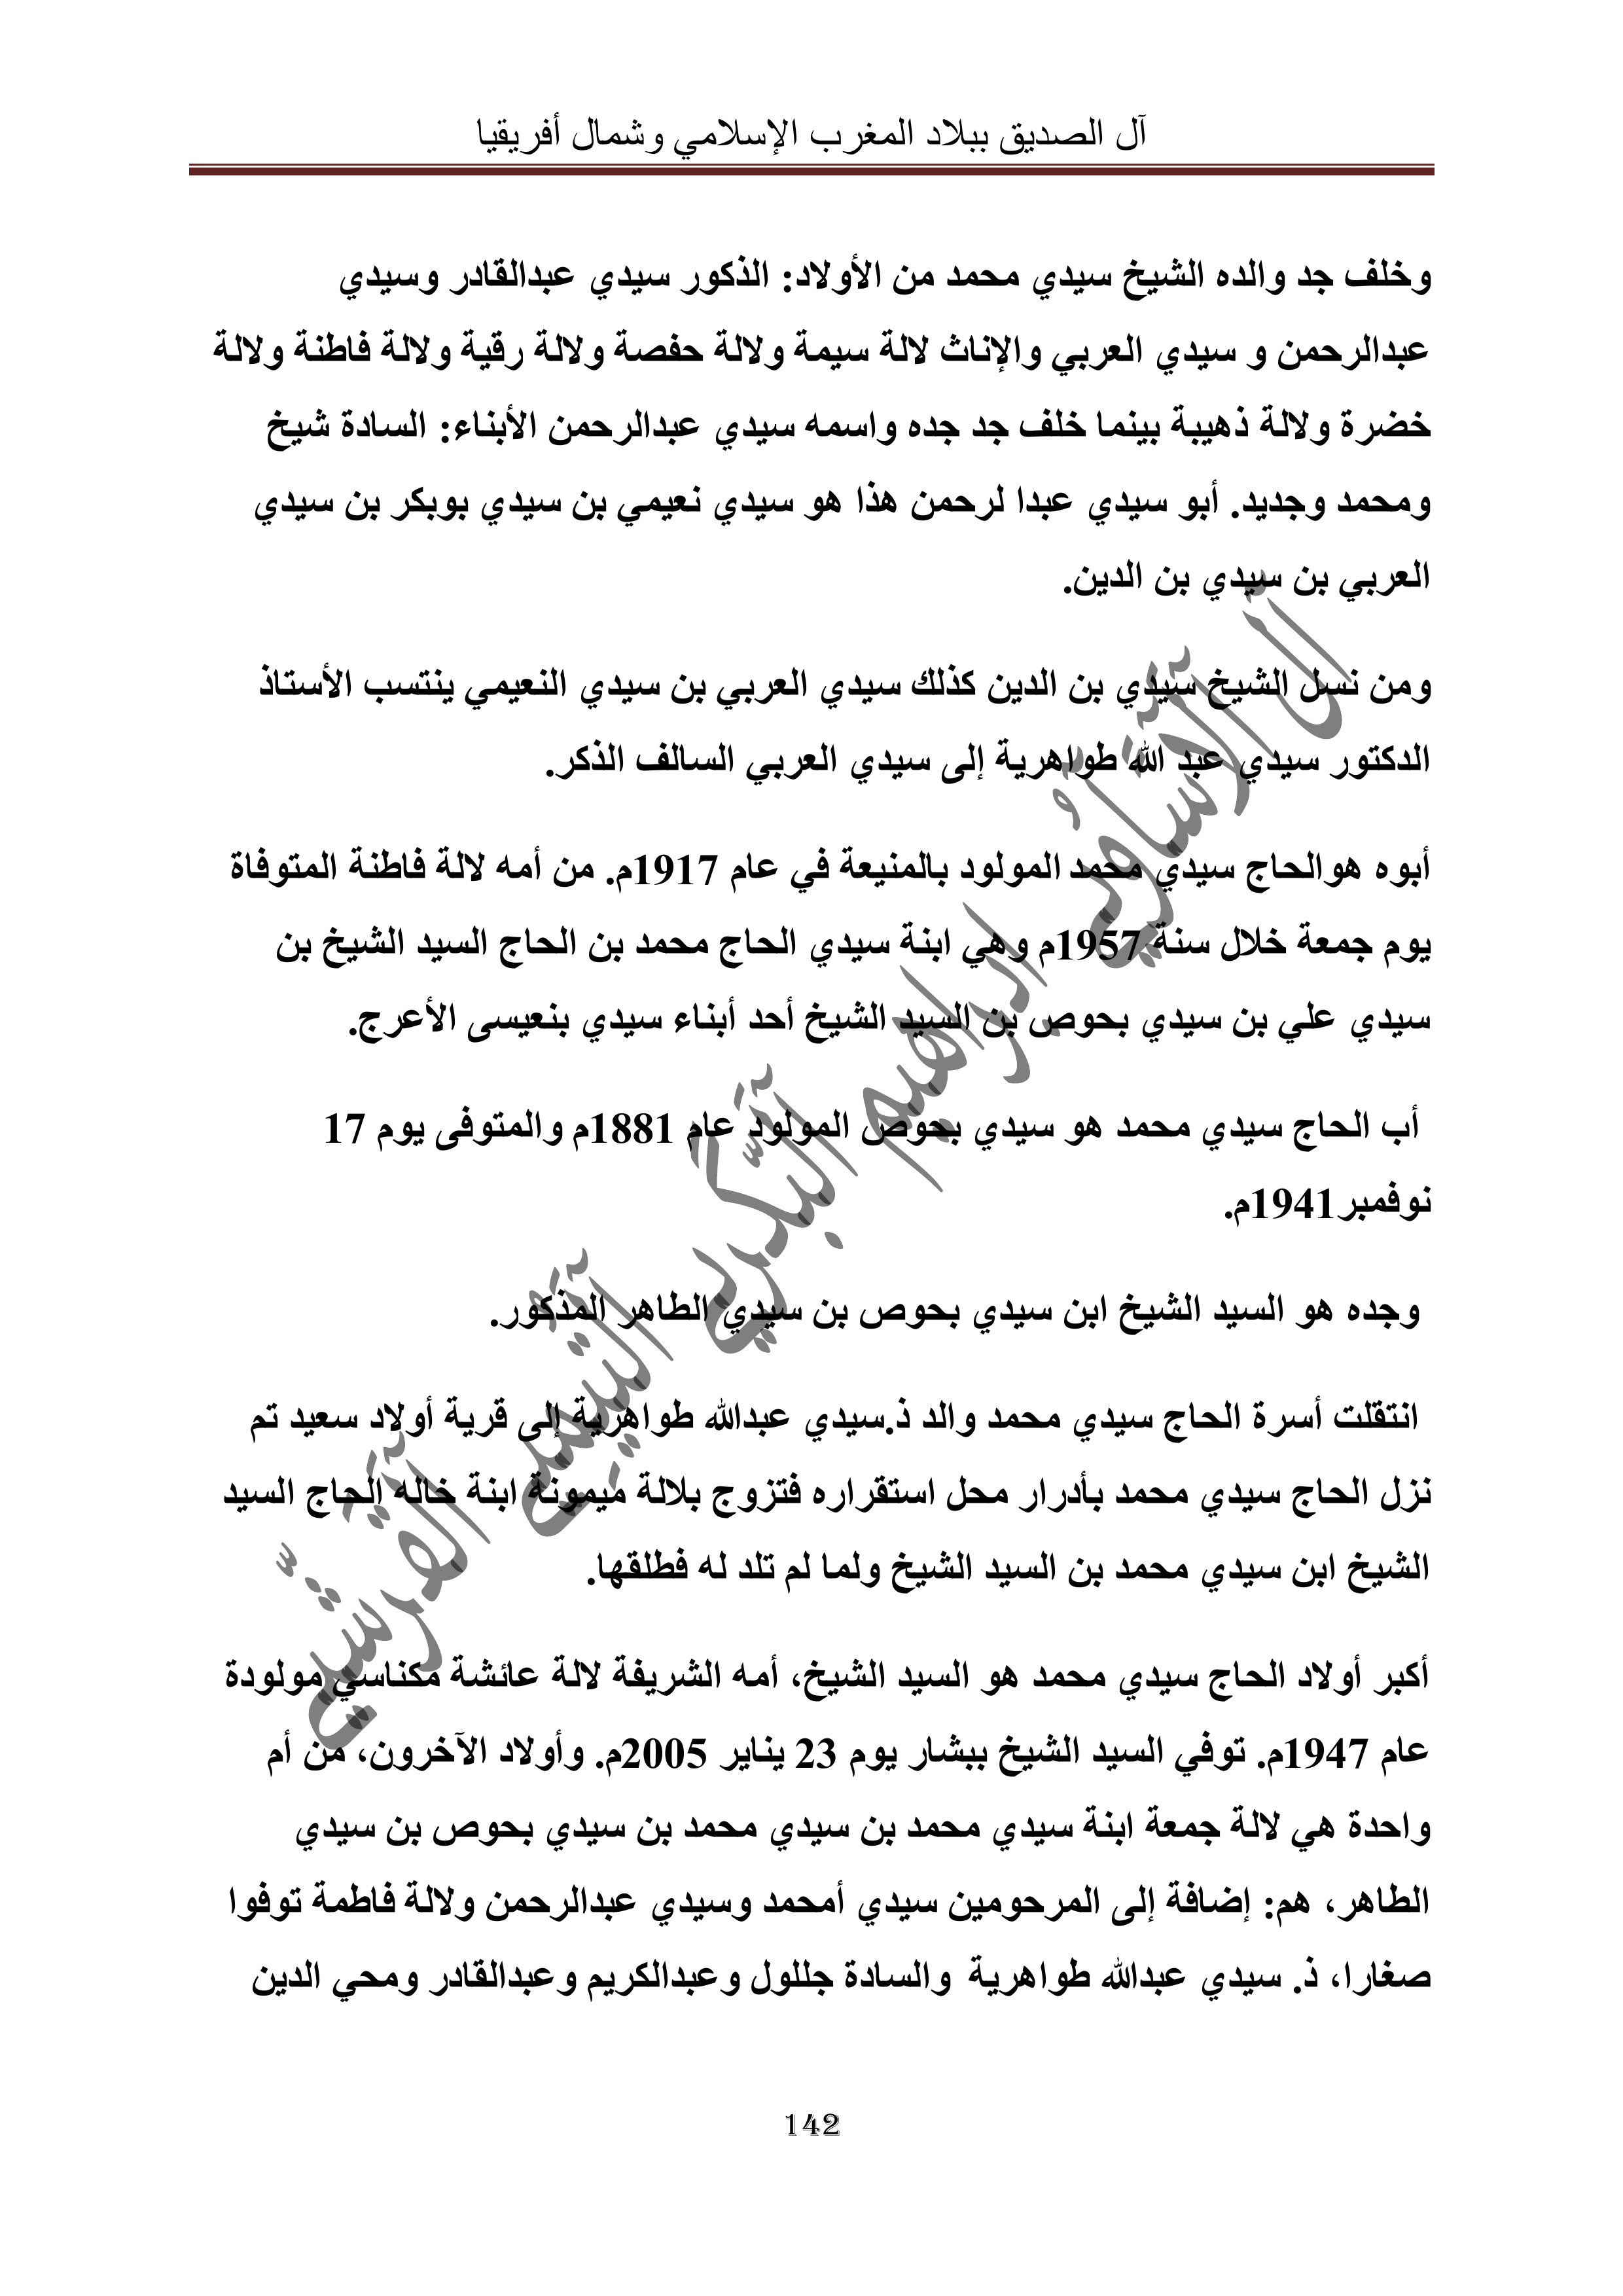 آل الصديق ببلاد المغرب الإسلامي وشمال أفريقيا
وخلف جد والده الشيخ سيدي محمد من الأولاد: الذكور سيدي عبدالقادر وسيدي
عبدالرحمن و سيدي العربي والإناث لالة سيمة ولالة حفصة ولالة رقية ولالة فاطنة ولالة
خضرة ولالة ذهيبة بينما خلف جد جده واسمه سيدي عبدالرحمن الأبناء: السادة شيخ
ومحمد وجديد. أبو سيدي عبدا لرحمن هذا هو سيدي نعيمي بن سيدي بوبكر بن سيدي
العربي بن سيدي بن الدين.
ومن نسل الشيخ سيدي بن الدين كذلك سيدي العربي بن سيدي النعيمي ينتسب الأستاذ
الدكتور سيدي عبد الله طواهرية إلى سيدي العربي السالف الذكر.
أبوه هوالحاج سيدي محمد المولود بالمنيعة في عام 1917م. من أمه لالة فاطنة المتوفاة
يوم جمعة خلال سنة 1957م وهي ابنة سيدي الحاج محمد بن الحاج السيد الشيخ بن
سيدي علي بن سيدي بحوص بن السيد الشيخ أحد أبناء سيدي بنعيسى الأعرج.
أب الحاج سيدي محمد هو سيدي بحوص المولود عام 1881م والمتوفى يوم 17
نوفمبر1941م.
وجده هو السيد الشيخ ابن سيدي بحوص بن سيدي الطاهر المذكور.
انتقلت أسرة الحاج سيدي محمد والد ذ.سيدي عبدالله طواهرية إلى قرية أولاد سعيد تم
نزل الحاج سيدي محمد بأدرار محل استقراره فتزوج بلالة ميمونة ابنة خاله الحاج السيد
الشيخ ابن سيدي محمد بن السيد الشيخ ولما لم تلد له فطلقها.
أكبر أولاد الحاج سيدي محمد هو السيد الشيخ، أمه الشريفة لالة عائشة مكناسي مولودة
عام 1947م. توفي السيد الشيخ ببشار يوم 23 يناير 2005م. وأولاد الآخرون، من أم
واحدة هي لالة جمعة ابنة سيدي محمد بن سيدي محمد بن سيدي بحوص بن سيدي
الطاهر، هم: إضافة إلى المرحومين سيدي أمحمد وسيدي عبدالرحمن ولالة فاطمة توفوا
صغارا، ذ. سيدي عبدالله طواهرية والسادة جللول وعبدالكريم وعبدالقادر ومحي الدين
142